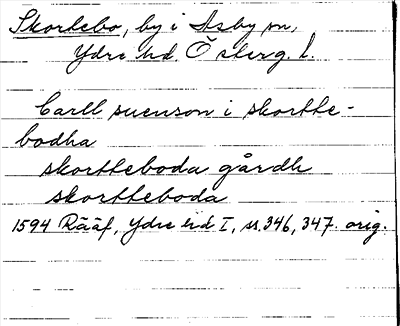 Skortebo, by i Asby sn,
Ydre hd. Österg. l.
Carll suenson i skortte-
bodha
skortteboda gårdh
skortteboda
1594 Rääf, Ydre hd I, ss. 346, 347. orig.